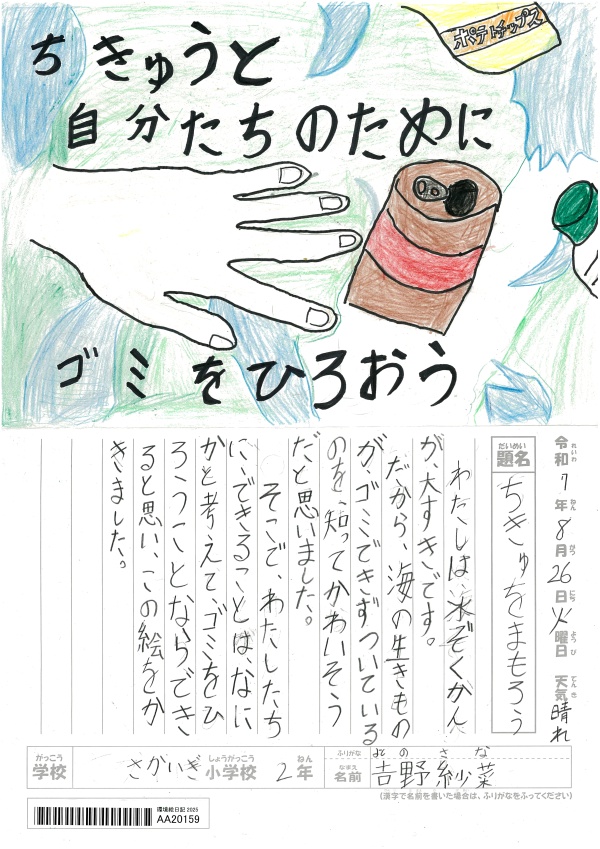 ちきゅうと
自分たちのために
ポテトチップス
ゴミをひろおう
令和7年8月26日火曜日 天気晴れ
れいわ ねん がつ にち ようび てんき
だいめい
題名 ちきゅをまもろう
わたしは、水ぞくかん
が、大すきです。
だから、海の生きもの
が、ゴミできずついている
のを、知ってかわいそう
だと思いました。
そこで、わたしたち
に、できることは、なに
かと考えて、ゴミをひ
ろうことならできき
ると思い、この絵をか
きました。
がっこう しょうがっこう ねん
学校 さかいぎ小学校 2年
ふりがな よのさな
なまえ
名前 吉野紗菜
(漢字で名前を書いた場合は、ふりがなをふってください)
環境絵日記 2025
AA20159